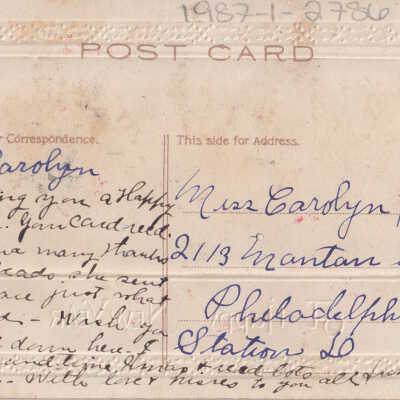 1987-1-2786
POST CARD
r Correspondence.
This side for Address.
Carolyn
ing you a Happy
. You Card recd.
many thanks
she sent
just what
- Wish you
down here. I
time Xmas & recd lots
With love & kisses to you all
Miss Carolyn
2113 Mantan
Philadelph
Station D